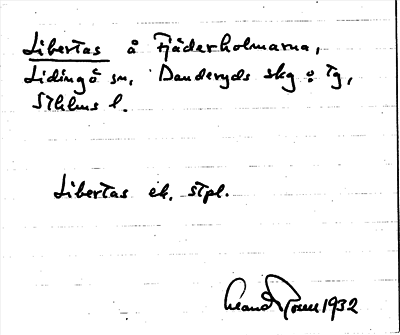 Libertas å Fjäderholmarna,
Lidingö sn, Danderyds skg o. tg,
Sthlms l.
Libertas ek. stpl.
1932